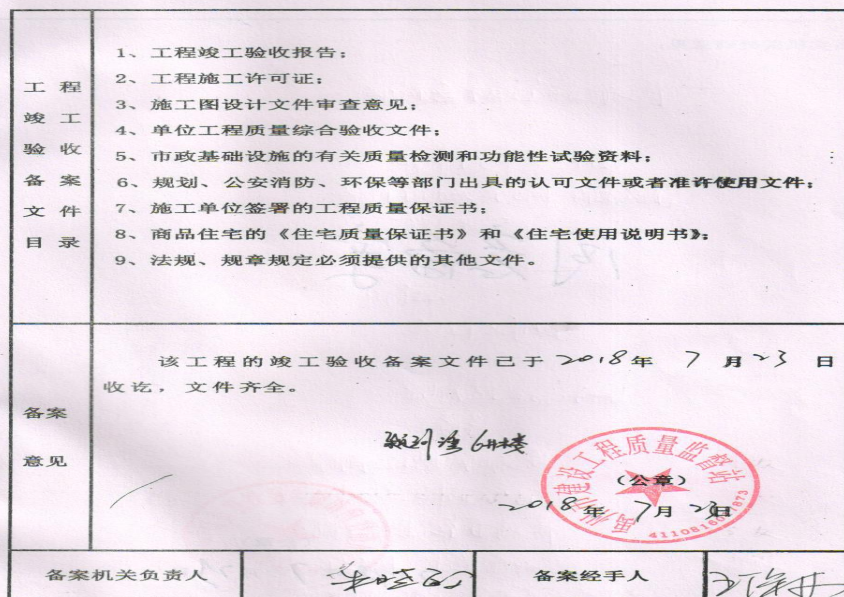 工程
竣工
验收
备案
文件
目录
1、工程竣工验收报告；
2、工程施工许可证；
3、施工图设计文件审查意见；
4、单位工程质量综合验收文件；
5、市政基础设施的有关质量检测和功能性试验资料；
6、规划、公安消防、环保等部门出具的认可文件或者准许使用文件；
7、施工单位签署的工程质量保证书；
8、商品住宅的《住宅质量保证书》和《住宅使用说明书》；
9、法规、规章规定必须提供的其他文件。
备案
意见
该工程的竣工验收备案文件已于2018年7月23日
收讫，文件齐全。
6#楼
禹州市建设工程质量监督站
（公章）
2018年7月23日
备案机关负责人
备案经手人